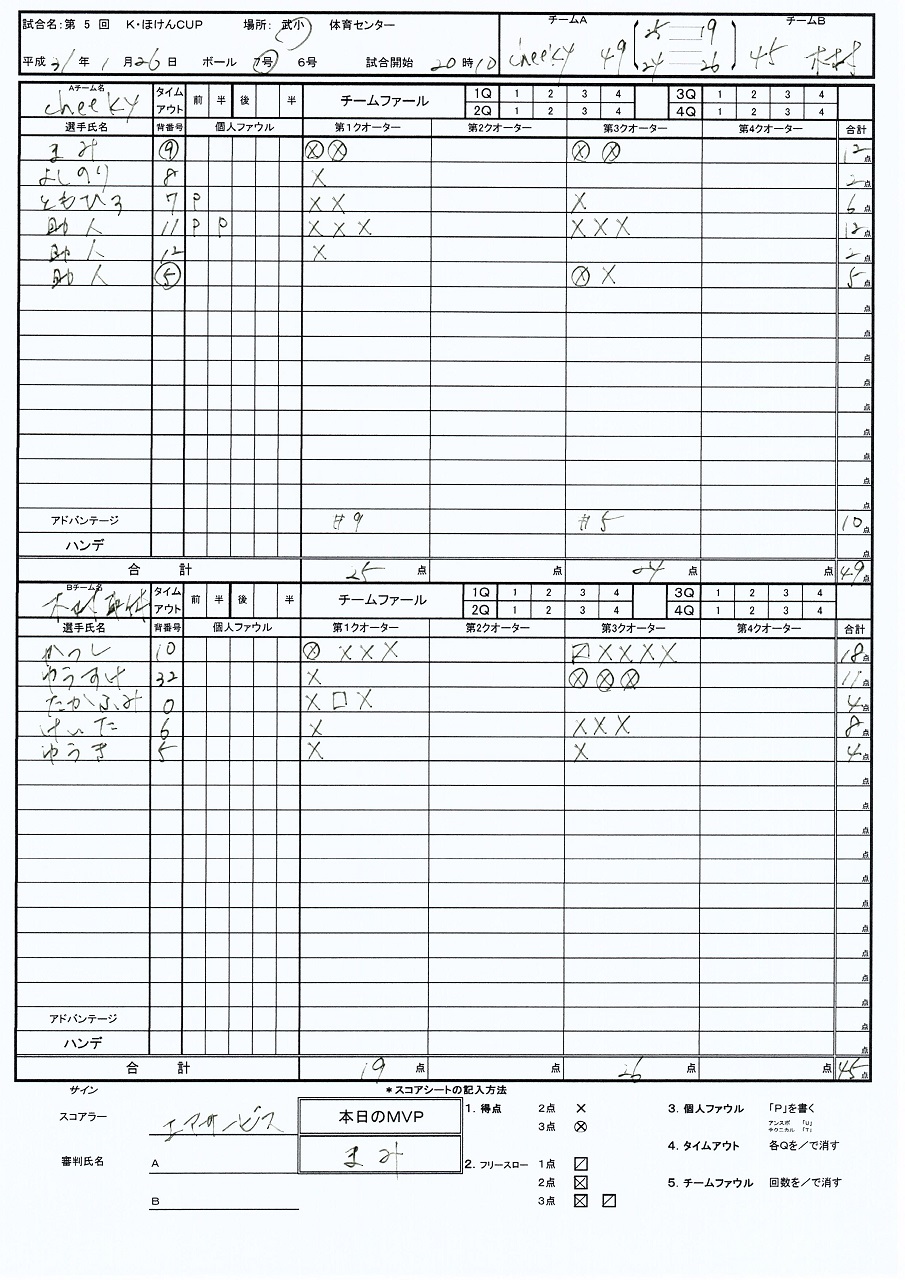 試合名:第 5 回 K・ほけんCUP 場所: 武小 体育センター
平成 31 年 1 月 26 日 ボール 7号 6号 試合開始 20 時 10
チームA チームB
cheeky 49 25 19 24 26 45 木村
Aチーム名 cheeky タイムアウト 前 半 後 半 チームファール 1Q 1 2 3 4 3Q 1 2 3 4
2Q 1 2 3 4 4Q 1 2 3 4
選手氏名 背番号 個人ファウル 第1クオーター 第2クオーター 第3クオーター 第4クオーター 合計
まみ 9 ⊗ ⊗ ⊗ ⊗ 12点
よしのり 8 X 2点
ともひろ 7 P X X X 6点
助人 11 P P X X X X X X 12点
助人 12 X 2点
助人 5 ⊗ X 5点
点
点
点
点
点
点
点
点
点
アドバンテージ #9 #5 10点
ハンデ 点
合 計 25 点 点 24 点 点 49点
Bチーム名 タイムアウト 前 半 後 半 チームファール 1Q 1 2 3 4 3Q 1 2 3 4
2Q 1 2 3 4 4Q 1 2 3 4
選手氏名 背番号 個人ファウル 第1クオーター 第2クオーター 第3クオーター 第4クオーター 合計
かつし 10 ⊗ X X X ☐ X X X X 18点
ゆうすけ 32 X ⊗ ⊗ ⊗ 11点
たかふみ 0 X □ X 4点
けいた 6 X X X X 8点
ゆうき 5 X X 4点
点
点
点
点
点
点
点
点
点
点
アドバンテージ 点
ハンデ 点
合 計 19 点 点 26 点 点 45点
サイン
スコアラー エアサービス
審判氏名 A
B
本日のMVP
まみ
*スコアシートの記入方法
1. 得点 2点 ×
3点 ⊗
2. フリースロー 1点 ⧄
2点 ☒
3点 ☒ ⧄
3. 個人ファウル 「P」を書く
アンスポ 「U」
テクニカル 「T」
4. タイムアウト 各Qを/で消す
5. チームファウル 回数を/で消す